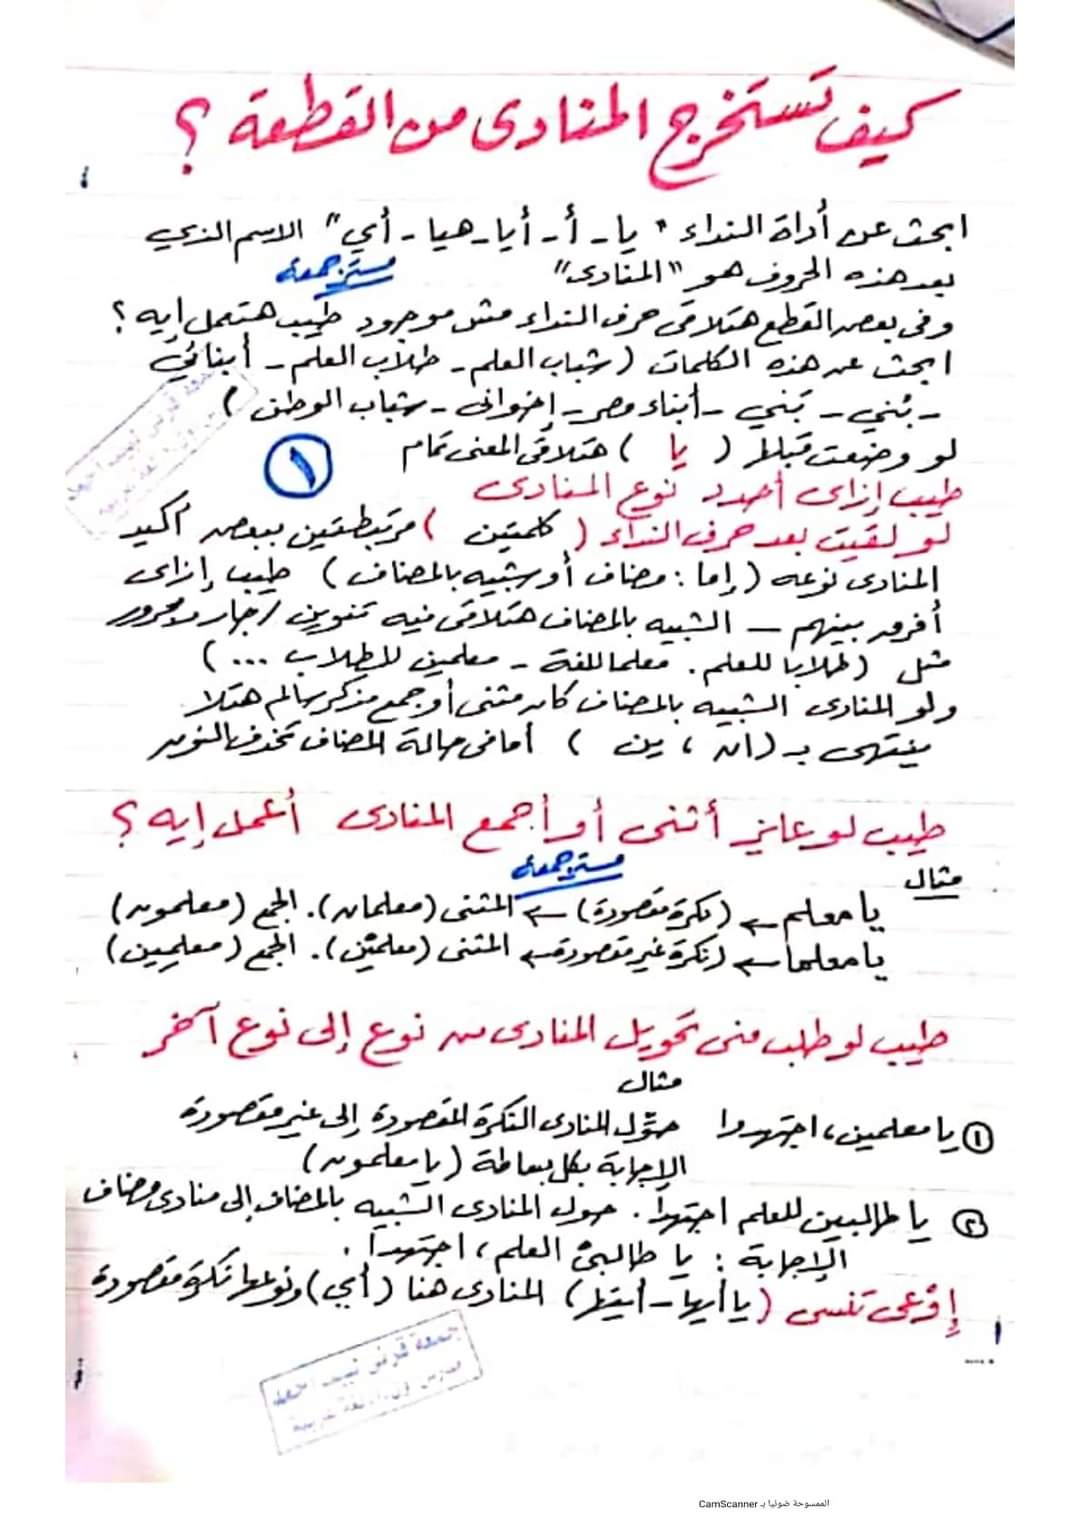 كيف تستخرج المنادى من القطعة ؟
ابحث عن أداة النداء " يا - أ - أيا - هيا - أي" الاسم الذي
بعد هذه الحروف هو "المنادى"
مستر جمعة
وفى بعض القطع هتلاقى حرف النداء مش موجود طيب هتعمل إيه ؟
ابحث عن هذه الكلمات ( شباب العلم - طلاب العلم - أبنائي
- بُني - بَني - أبناء مصر - إخوانى - شباب الوطن )
لو وضعت قبلها ( يا ) هتلاقى المعنى تمام
١
طيب إزاى أحدد نوع المنادى
لو لقيت بعد حرف النداء ( كلمتين ) مرتبطتين ببعض أكيد
المنادى نوعه ( إما : مضاف أو شبيه بالمضاف ) طيب إزاى
أفرق بينهم - الشبيه بالمضاف هتلاقى فيه تنوين / جار ومجرور
مثل ( طلابا للعلم . معلما للغة - معلمين للطلاب ... )
ولو المنادى الشبيه بالمضاف كان مثنى أو جمع مذكر سالم هتلا
ينتهى بـ ( ان ، ين ) أما فى حالة المضاف تحذف النون
طيب لو عايز أثنى أو أجمع المنادى أعمل إيه ؟
مستر جمعة
مثال
يا معلم ← (نكرة مقصودة) ← المثنى (معلمان). الجمع (معلمون)
يا معلما ← (نكرة غير مقصودة ← المثنى (معلمَيْن). الجمع (معلمِين)
طيب لو طلب منى تحويل المنادى من نوع إلى نوع آخر
مثال
١ يا معلمين ، اجتهدوا حوّل المنادى النكرة المقصودة إلى غير مقصودة
الإجابة بكل بساطة ( يا معلمون )
٢ يا طالبين للعلم اجتهدا . حول المنادى الشبيه بالمضاف إلى منادى مضاف
الإجابة : يا طالبىْ العلم ، اجتهدا .
إوْعى تنسى ( يا أيها - أيتها ) المنادى هنا ( أي ) ونوعها نكرة مقصودة
الممسوحة ضوئيا بـ CamScanner